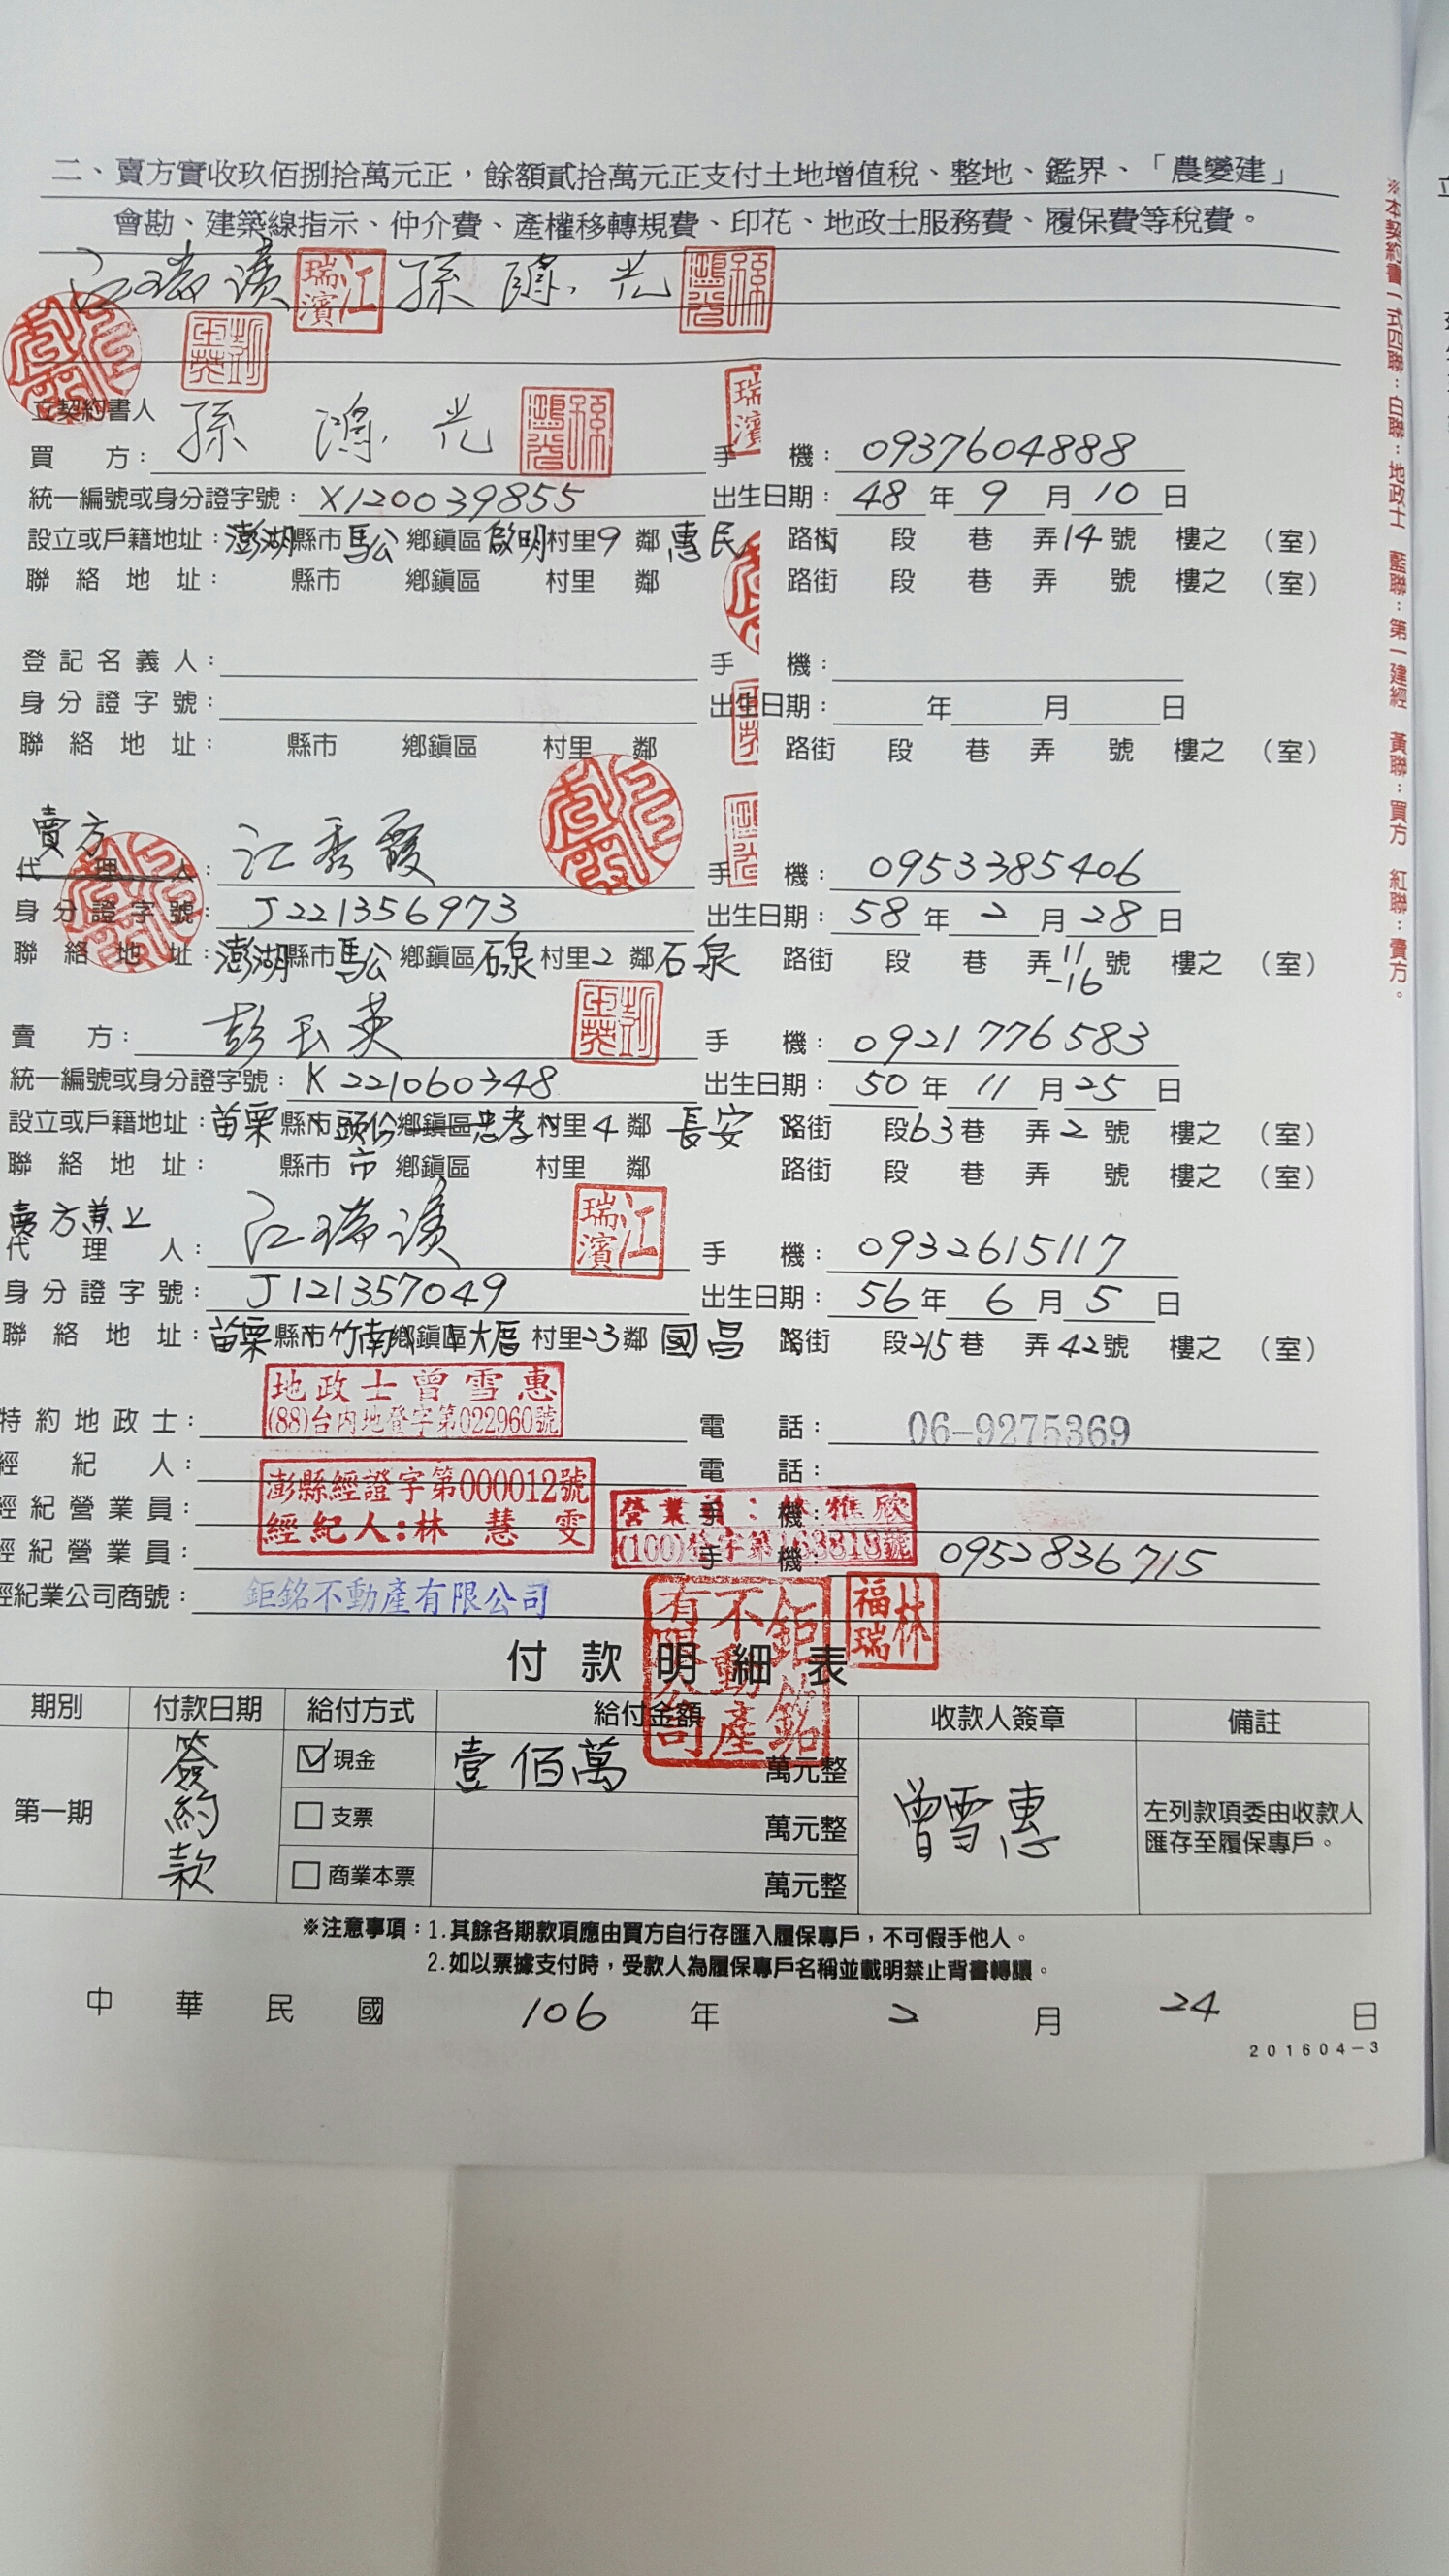 二、賣方實收玖佰捌拾萬元正，餘額貳拾萬元正支付土地增值稅、整地、鑑界、「農變建」
會勘、建築線指示、仲介費、產權移轉規費、印花、地政士服務費、履保費等稅費。
江瑞濱 江瑞濱 孫鴻光 孫鴻光
立契約書人
買方：孫鴻光 孫鴻光 手機：0937604888
統一編號或身分證字號：X120039855 出生日期：48年9月10日
設立或戶籍地址：澎湖縣市馬公鄉鎮區啟明村里9鄰惠民路街 段 巷 弄14號 樓之 （室）
聯絡地址： 縣市 鄉鎮區 村里 鄰 路街 段 巷 弄 號 樓之 （室）
登記名義人： 手機：
身分證字號： 出生日期： 年 月 日
聯絡地址： 縣市 鄉鎮區 村里 鄰 路街 段 巷 弄 號 樓之 （室）
賣方
代理人：江秀霞 手機：0953385406
身分證字號：J221356973 出生日期：58年2月28日
聯絡地址：澎湖縣市馬公鄉鎮區石泉村里2鄰石泉路街 段 巷 弄11-16號 樓之 （室）
賣方：彭玉英 彭玉英 手機：0921776583
統一編號或身分證字號：K221060348 出生日期：50年11月25日
設立或戶籍地址：苗栗縣市頭份鄉鎮區忠孝村里4鄰長安路街 段63巷 弄2號 樓之 （室）
聯絡地址： 縣市 市 鄉鎮區 村里 鄰 路街 段 巷 弄 號 樓之 （室）
賣方兼上
代理人：江瑞濱 江瑞濱 手機：0932615117
身分證字號：J121357049 出生日期：56年6月5日
聯絡地址：苗栗縣市竹南鄉鎮區大厝村里23鄰國昌路街 段215巷 弄42號 樓之 （室）
地政士曾雪惠
(88)台內地登字第022960號
特約地政士： 電話：06-9275369
經紀人： 電話：
澎縣經證字第000012號
經紀人：林慧雯
營業員：林雅欣
經紀營業員： 手機：
經紀營業員： 手機：0952836715
經紀業公司商號：鉅銘不動產有限公司
鉅銘不動產有限公司
林福瑞
付款明細表
期別 付款日期 給付方式 給付金額 收款人簽章 備註
第一期 簽約款 ☑現金 壹佰萬 萬元整 曾雪惠 左列款項委由收款人匯存至履保專戶。
□支票 萬元整
□商業本票 萬元整
※注意事項：1.其餘各期款項應由買方自行存匯入履保專戶，不可假手他人。
2.如以票據支付時，受款人為履保專戶名稱並載明禁止背書轉讓。
中華民國106年2月24日
201604-3
※本契約書一式四聯：白聯：地政士 藍聯：第一建經 黃聯：買方 紅聯：賣方。